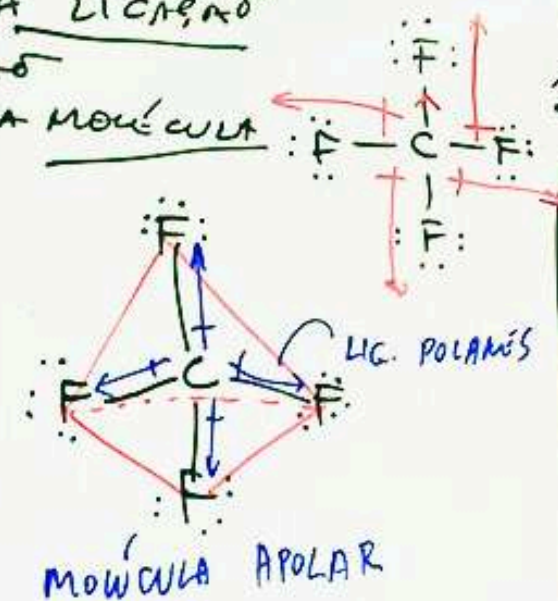 A LIGAÇÃO
A MOLÉCULA
F
F — C — F
F
F
F C F
F
LIG. POLARES
MOLÉCULA APOLAR